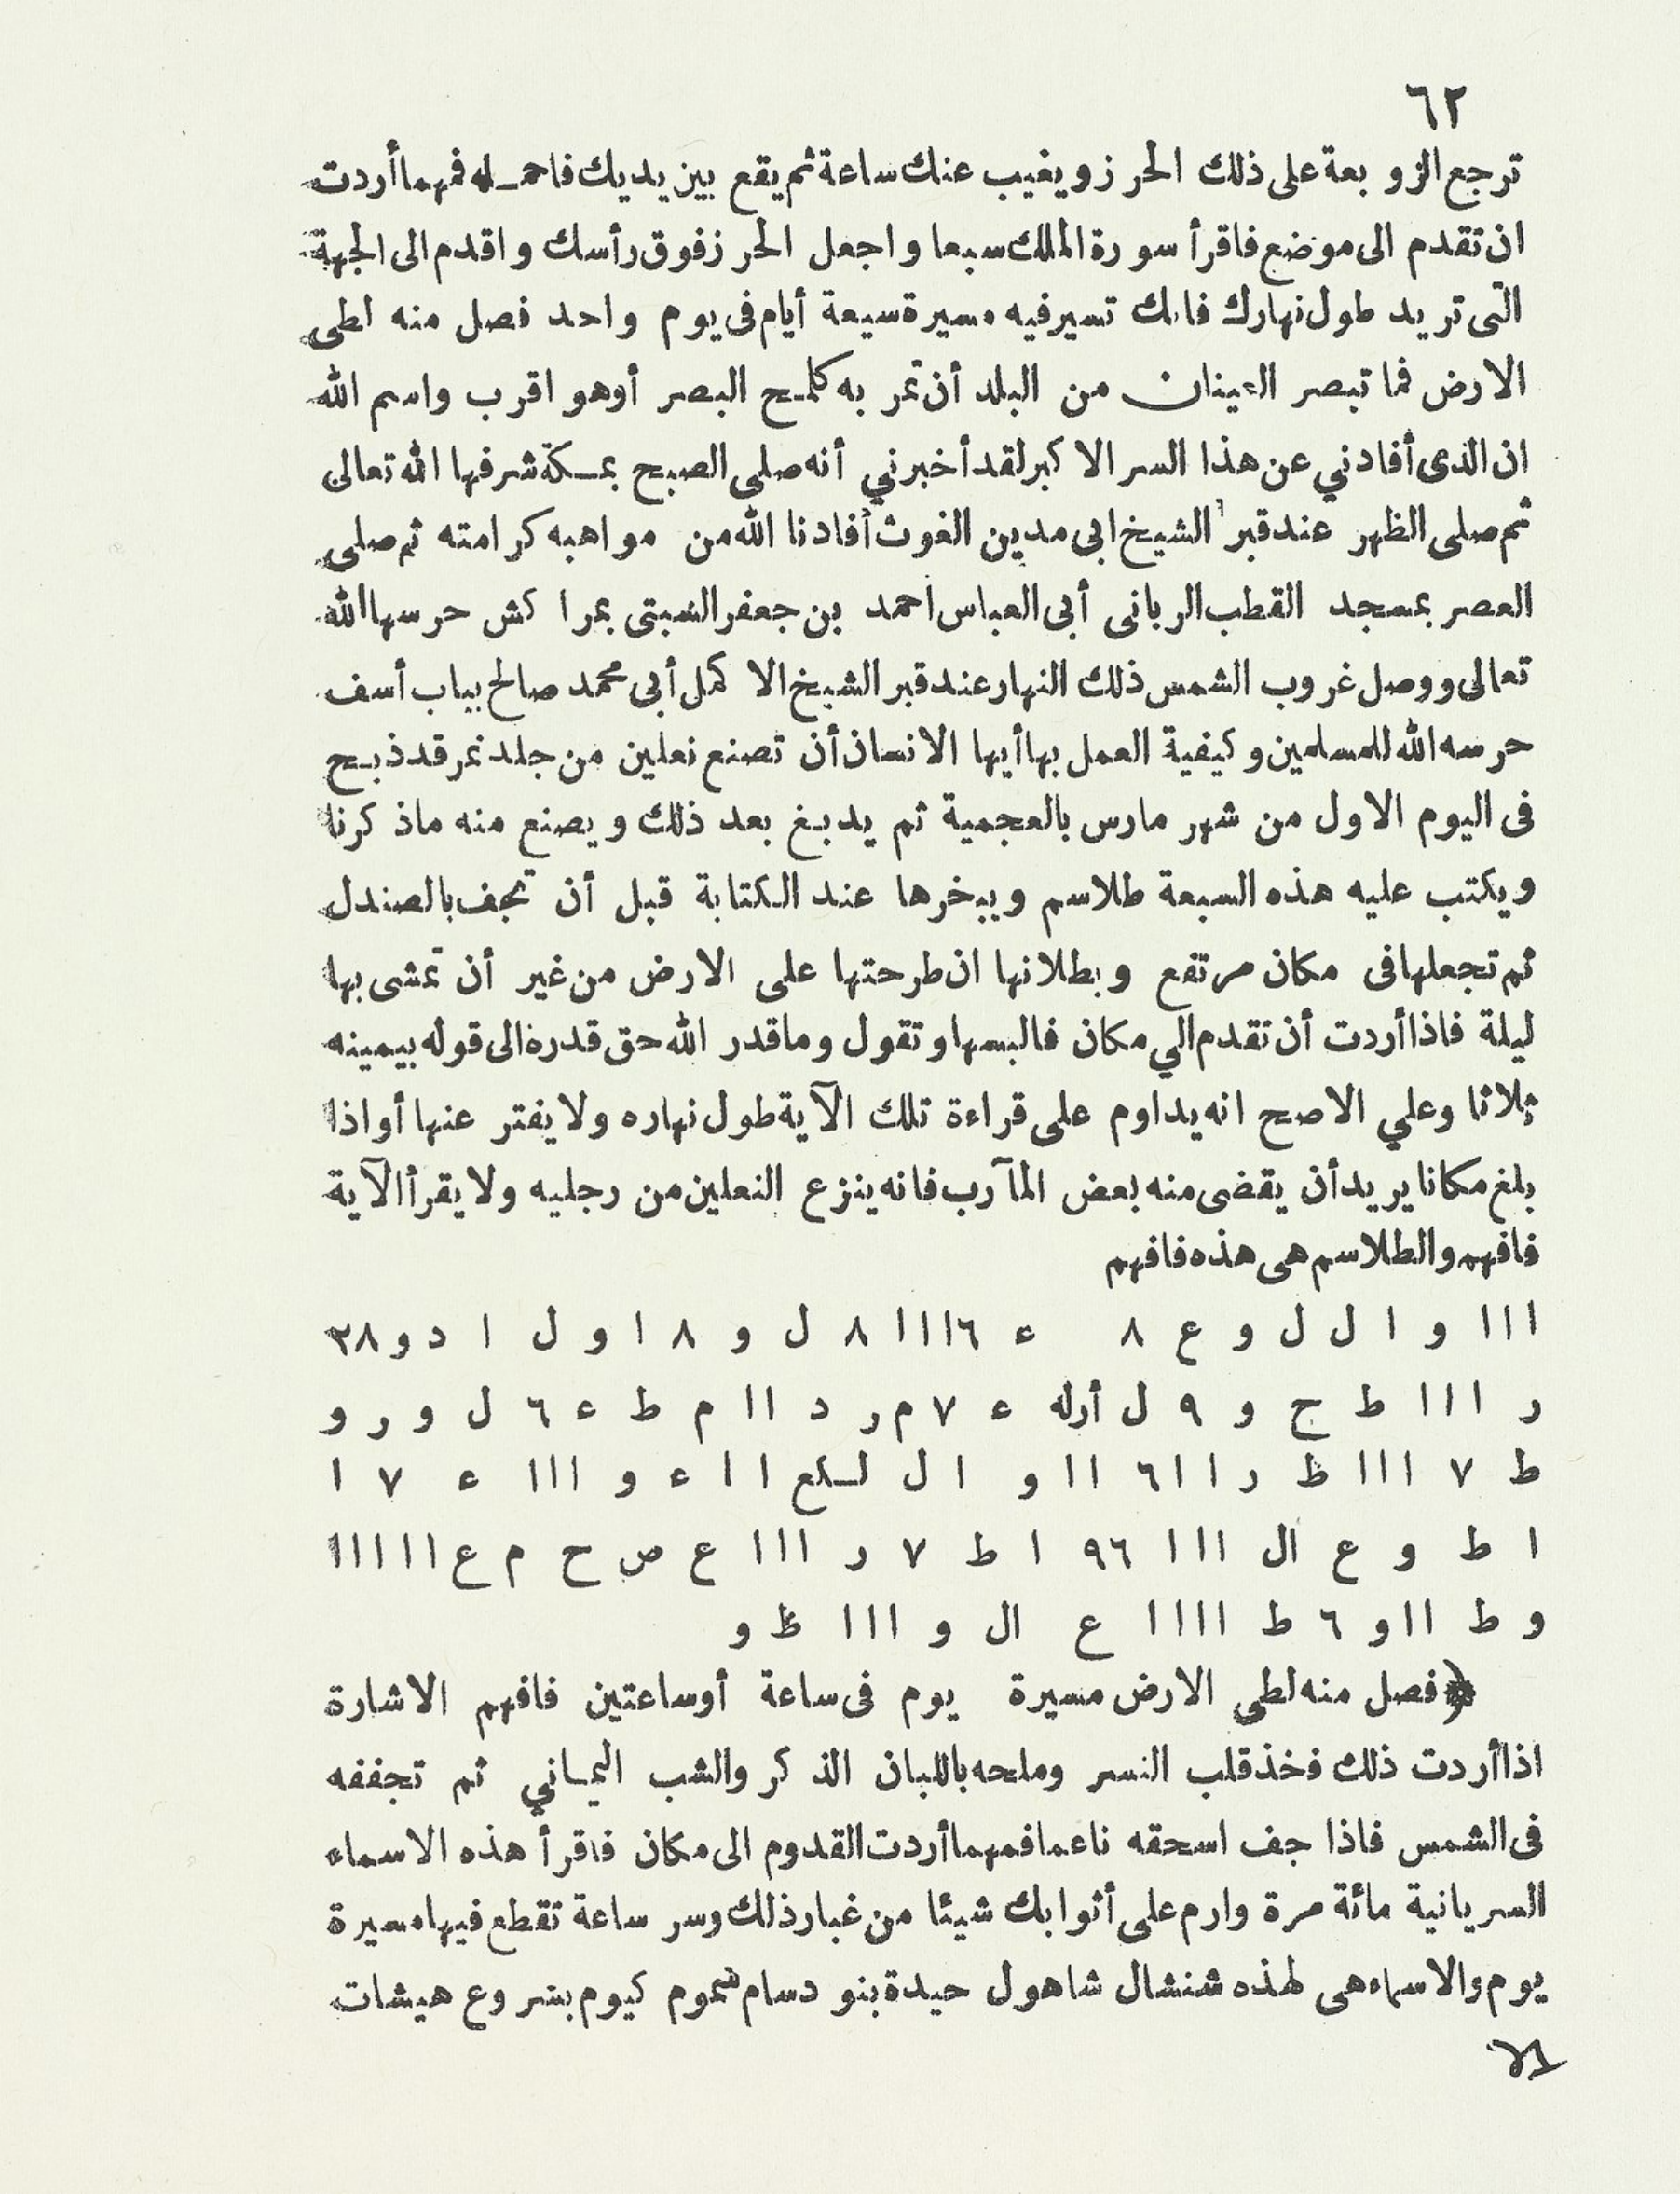 ٦٢
ترجع الزوبعة على ذلك الحرز ويغيب عنك ساعة ثم يقع بين يديك فاحمله فمهما أردت
ان تقدم الى موضع فاقرأ سورة الملك سبعا واجعل الحرز فوق رأسك واقدم الى الجهة
التى تريد طول نهارك فانك تسير فيه مسيرة سبعة أيام فى يوم واحد فصل منه لطى
الارض فما تبصر العينان من البلد أن تمر به كلمح البصر أوهو اقرب واسم الله
ان الذى أفادني عن هذا السر الاكبر لقد أخبرني أنه صلى الصبح بمكة شرفها الله تعالى
ثم صلى الظهر عند قبر الشيخ ابى مدين الغوث أفادنا الله من مواهبه كرامته ثم صلى
العصر بمسجد القطب الربانى أبى العباس احمد بن جعفر السبتى بمراكش حرسها الله
تعالى ووصل غروب الشمس ذلك النهار عند قبر الشيخ الاكمل أبى محمد صالح بباب أسف
حرسه الله للمسلمين وكيفية العمل بها أيها الانسان أن تصنع نعلين من جلد نمر قد ذبح
فى اليوم الاول من شهر مارس بالعجمية ثم يدبغ بعد ذلك ويصنع منه ماذكرنا
ويكتب عليه هذه السبعة طلاسم ويبخرها عند الكتابة قبل أن تجف بالصندل
ثم تجعلها فى مكان مرتفع وبطلانها ان طرحتها على الارض من غير أن تمشى بها
ليلة فاذا أردت أن تقدم الي مكان فالبسها وتقول وماقدر الله حق قدره الى قوله بيمينه
ثلاثا وعلي الاصح انه يداوم على قراءة تلك الآية طول نهاره ولا يفتر عنها أو اذا
بلغ مكانا يريد أن يقضى منه بعض المآرب فانه ينزع النعلين من رجليه ولا يقرأ الآية
فافهم والطلاسم هى هذه فافهم
ا ا ا و ا ل ل و ع ٨ ء ٦ ا ا ا ٨ ل و ٨ ا و ل ا د و ٣٨
ر ا ا ا ط ج و ٩ ل أرله ء ٧ م ر د ا ا م ط ء ٦ ل و ر و
ط ٧ ا ا ا ظ ر ا ا ٦ ا ا و ا ل لكع ا ا ء و ا ا ا ء ٧ ا
ا ط و ع ال ا ا ا ٩٦ ا ط ٧ ر ا ا ا ع ص ح م ع ا ا ا ا ا
و ط ا ا و ٦ ط ا ا ا ا ع ال و ا ا ا ظ و
﴿فصل منه لطى الارض مسيرة يوم فى ساعة أوساعتين فافهم الاشارة
اذا أردت ذلك فخذ قلب النسر وملحه باللبان الذكر والشب اليماني ثم تجففه
فى الشمس فاذا جف اسحقه ناعما فمهما أردت القدوم الى مكان فاقرأ هذه الاسماء
السريانية مائة مرة وارم على أثوابك شيئا من غبار ذلك وسر ساعة تقطع فيها مسيرة
يوم والاسماء هى لهذه شنشال شاهول حيدة بنو دسام شموم كيوم بشروع هيشات